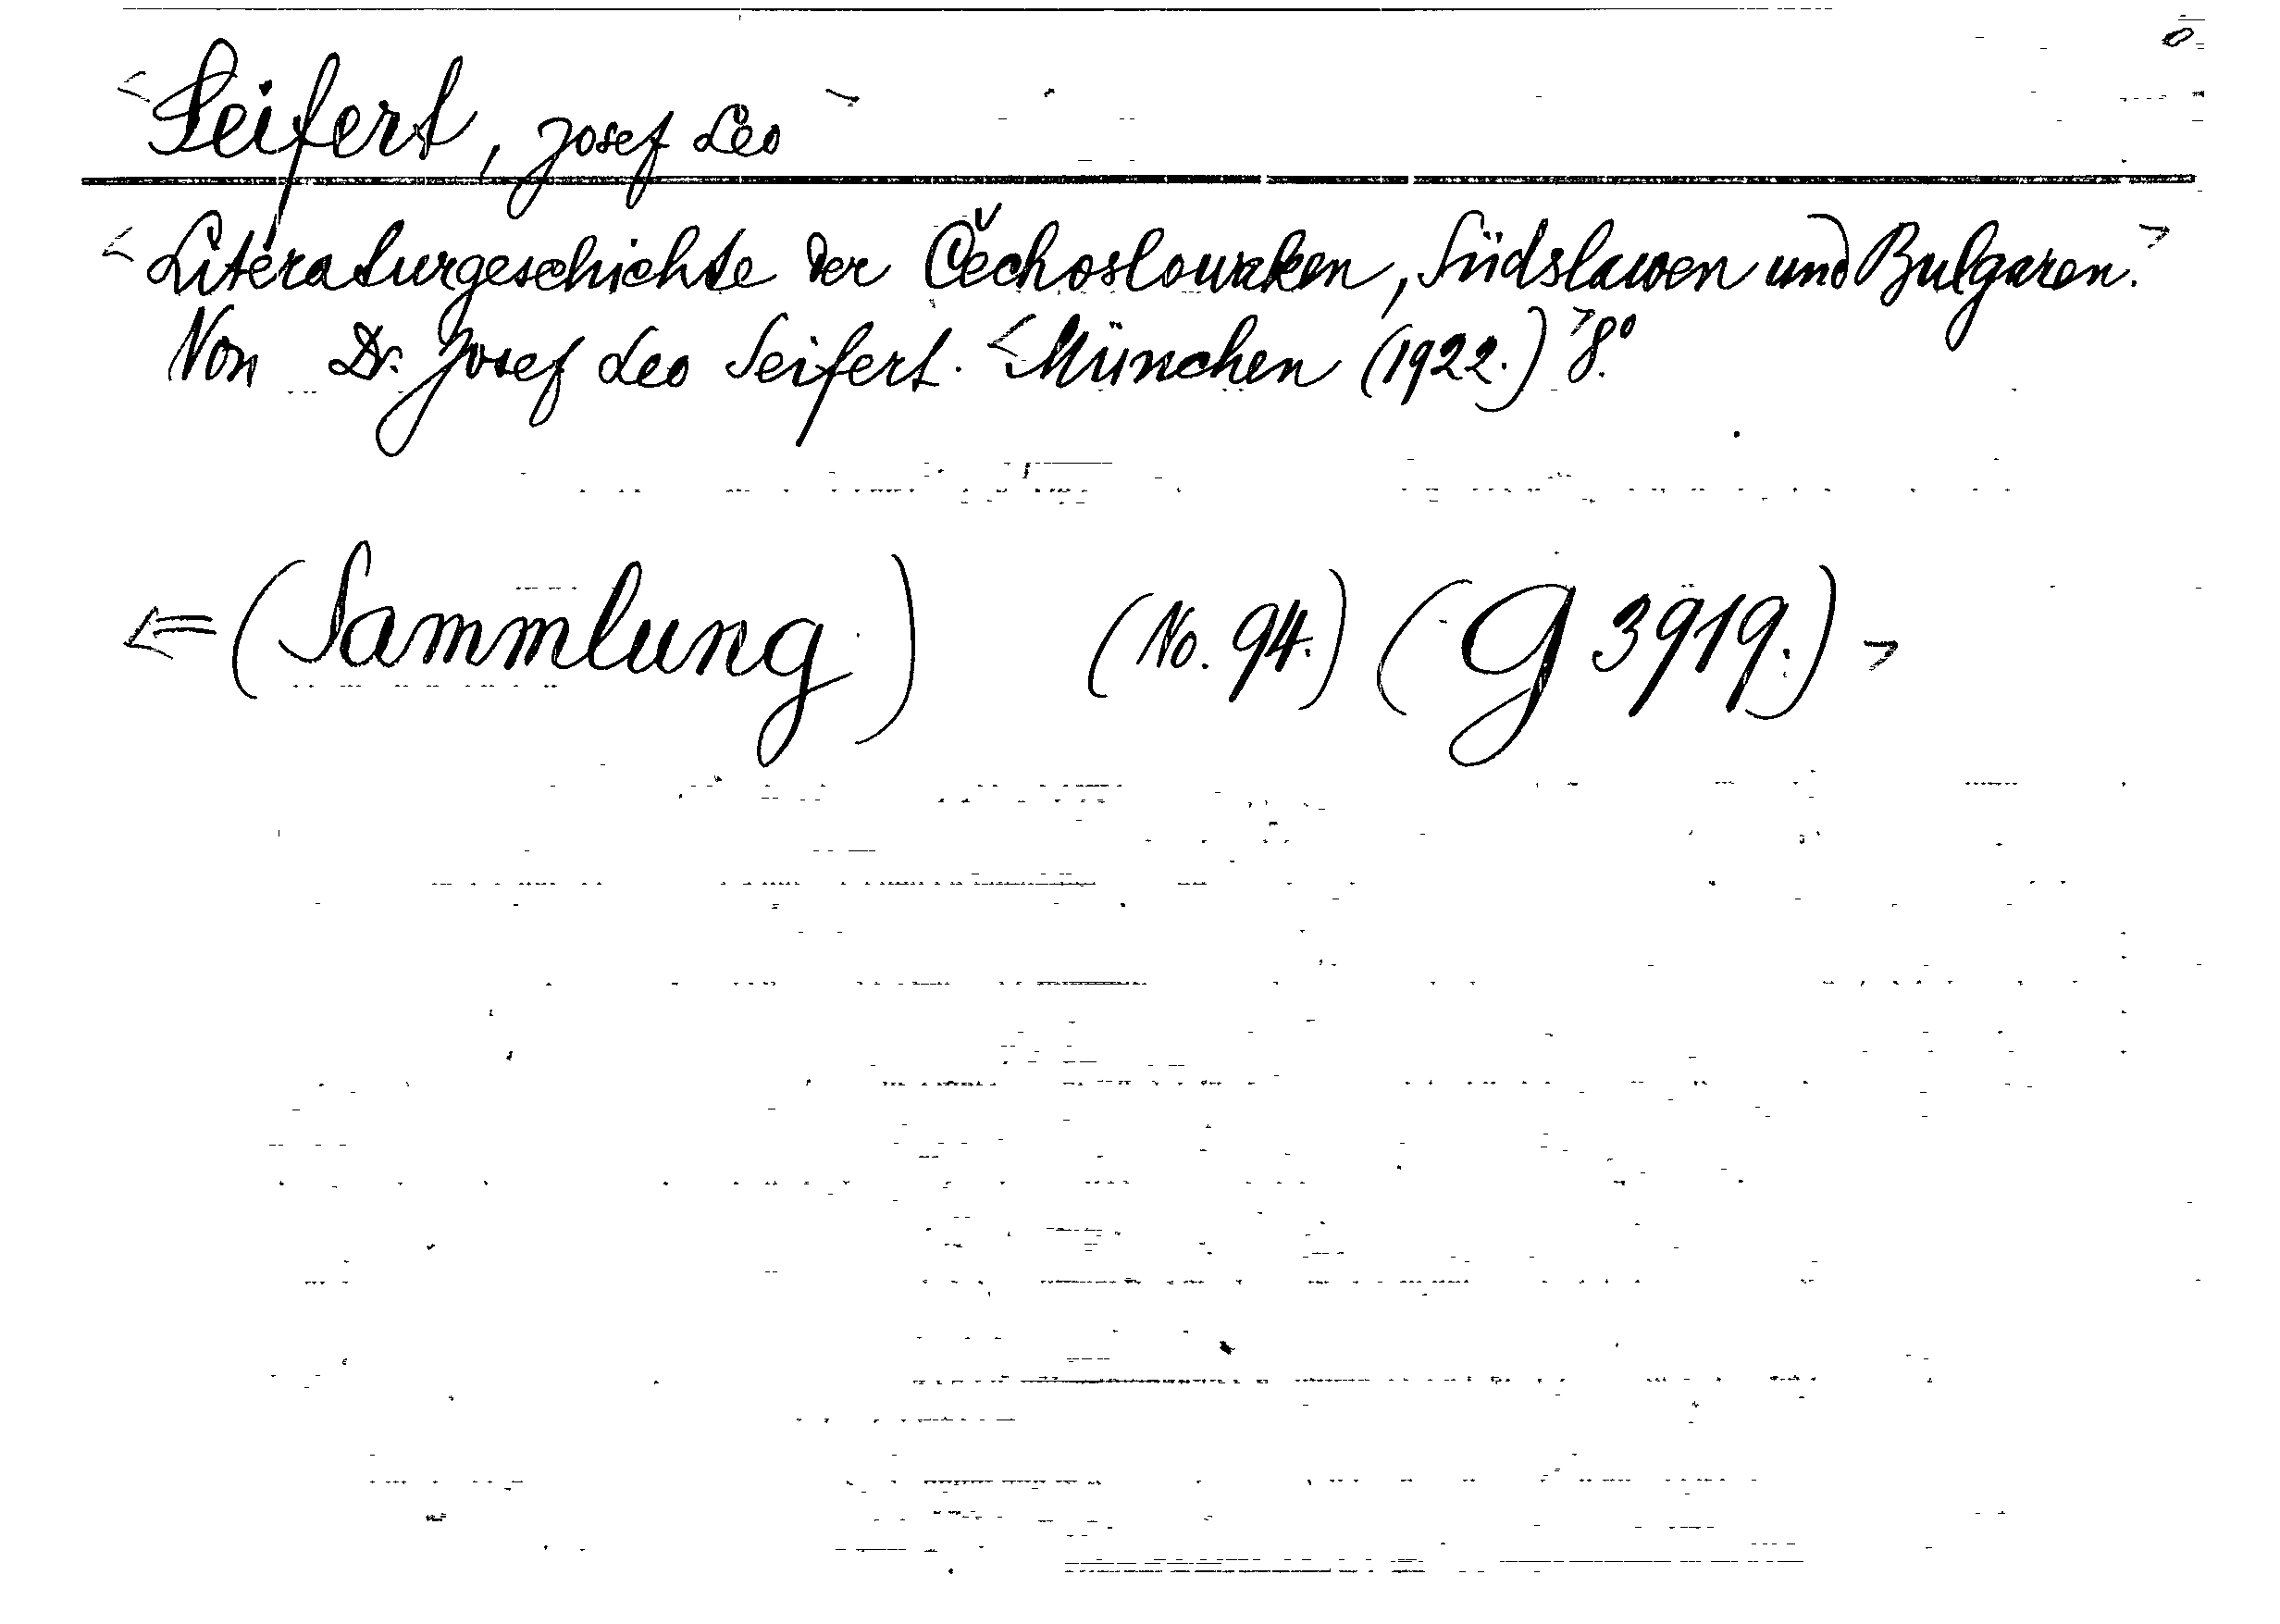 <Seifert, Josef Leo>
<Literaturgeschichte der Čechoslowaken, Südslawen und Bulgaren.>
Von Dr. Josef Leo Seifert. <München (1922.)> 8°.
<=(Sammlung) (No. 94.) (G 3919.)>